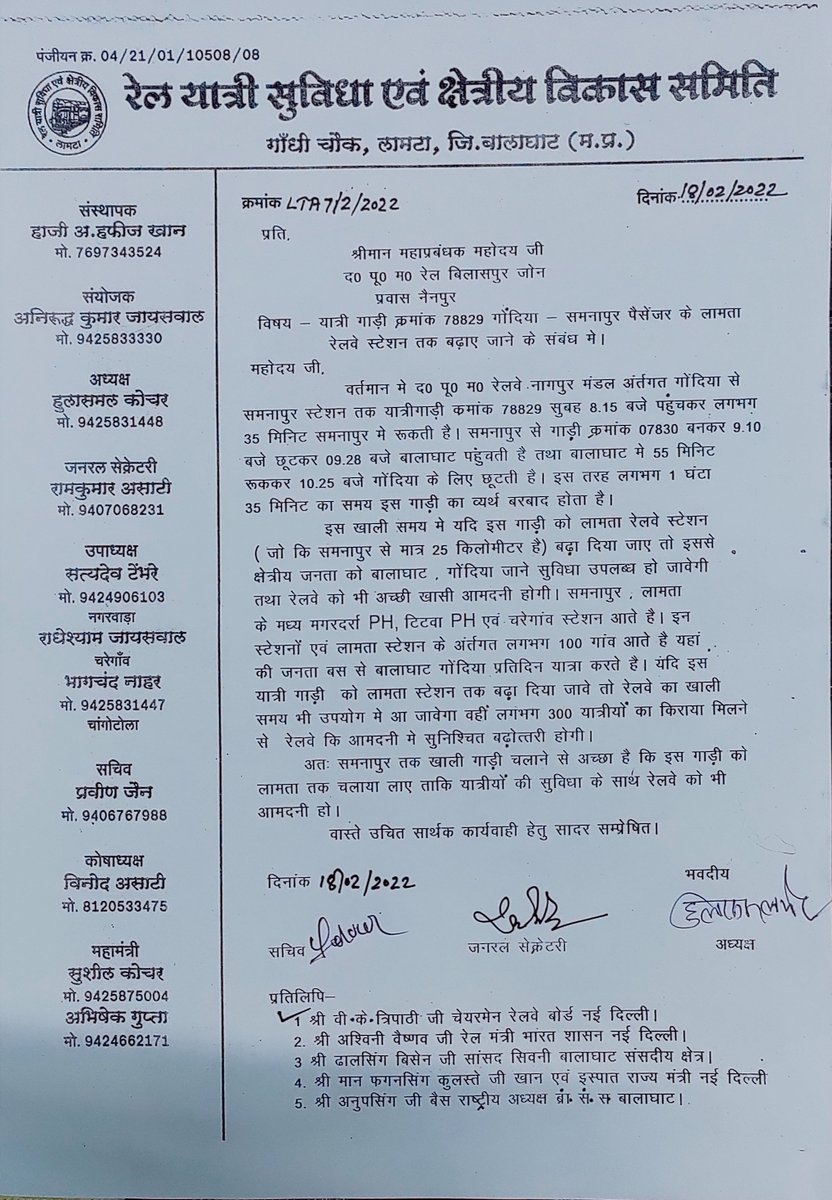 पंजीयन क्र. 04/21/01/10508/08
रेल यात्री सुविधा एवं क्षेत्रीय विकास समिति
गाँधी चौक, लामटा, जि.बालाघाट (म.प्र.)
संस्थापक
हाजी अ.हफीज खान
मो. 7697343524
संयोजक
अनिरुद्ध कुमार जायसवाल
मो. 9425833330
अध्यक्ष
हुलासमल कोचर
मो. 9425831448
जनरल सेक्रेटरी
रामकुमार असाटी
मो. 9407068231
उपाध्यक्ष
सत्यदेव टेंभरे
मो. 9424906103
नगरवाड़ा
राधेश्याम जायसवाल
चरेगाँव
भागचंद नाहर
मो. 9425831447
चांगोटोला
सचिव
प्रवीण जैन
मो. 9406767988
कोषाध्यक्ष
विनोद असाटी
मो. 8120533475
महामंत्री
सुशील कोचर
मो. 9425875004
अभिषेक गुप्ता
मो. 9424662171
क्रमांक LTA7/2/2022
दिनांक 18/02/2022
प्रति,
श्रीमान महाप्रबंधक महोदय जी
द0 पू0 म0 रेल बिलासपुर जोन
प्रवास नैनपुर
विषय – यात्री गाड़ी क्रमांक 78829 गोंदिया – समनापुर पैसेंजर के लामता
रेलवे स्टेशन तक बढ़ाए जाने के संबंध मे।
महोदय जी,
वर्तमान मे द0 पू0 म0 रेलवे नागपुर मंडल अंर्तगत गोंदिया से
समनापुर स्टेशन तक यात्रीगाड़ी कमांक 78829 सुबह 8.15 बजे पहुंचकर लगभग
35 मिनिट समनापुर मे रूकती है। समनापुर से गाड़ी क्रमांक 07830 बनकर 9.10
बजे छूटकर 09.28 बजे बालाघाट पहुंचती है तथा बालाघाट मे 55 मिनिट
रूककर 10.25 बजे गोंदिया के लिए छूटती है। इस तरह लगभग 1 घंटा
35 मिनिट का समय इस गाड़ी का व्यर्थ बरबाद होता है।
इस खाली समय मे यदि इस गाड़ी को लामता रेलवे स्टेशन
( जो कि समनापुर से मात्र 25 किलोमीटर है) बढ़ा दिया जाए तो इससे
क्षेत्रीय जनता को बालाघाट , गोंदिया जाने सुविधा उपलब्ध हो जावेगी
तथा रेलवे को भी अच्छी खासी आमदनी होगी। समनापुर , लामता
के मध्य मगरदर्रा PH, टिटवा PH एवं चरेगांव स्टेशन आते है। इन
स्टेशनों एवं लामता स्टेशन के अंर्तगत लगभग 100 गांव आते है यहां
की जनता बस से बालाघाट गोंदिया प्रतिदिन यात्रा करते है। यदि इस
यात्री गाड़ी को लामता स्टेशन तक बढ़ा दिया जावे तो रेलवे का खाली
समय भी उपयोग मे आ जावेगा वहीं लगभग 300 यात्रीयों का किराया मिलने
से रेलवे कि आमदनी मे सुनिश्चित बढ़ोत्तरी होगी।
अतः समनापुर तक खाली गाड़ी चलाने से अच्छा है कि इस गाड़ी को
लामता तक चलाया लाए ताकि यात्रीयों की सुविधा के साथ रेलवे को भी
आमदनी हो।
वास्ते उचित सार्थक कार्यवाही हेतु सादर सम्प्रेषित।
दिनांक 18/02/2022
भवदीय
सचिव
जनरल सेक्रेटरी
अध्यक्ष
प्रतिलिपि–
1 श्री वी.के.त्रिपाठी जी चेयरमेन रेलवे बोर्ड नई दिल्ली।
2. श्री अश्विनी वैष्णव जी रेल मंत्री भारत शासन नई दिल्ली।
3 श्री ढालसिंग बिसेन जी सांसद सिवनी बालाघाट संसदीय क्षेत्र।
4. श्री मान फगनसिंग कुलस्ते जी खान एवं इस्पात राज्य मंत्री नई दिल्ली
5. श्री अनुपसिंग जी बैस राष्ट्रीय अध्यक्ष ब्रा. सं. स बालाघाट।